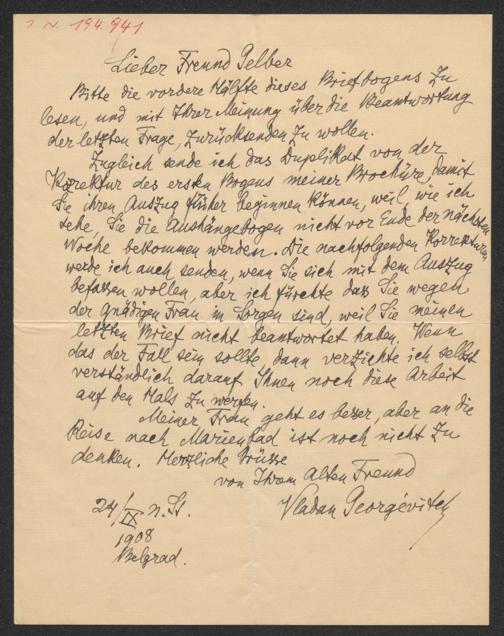 I. N. 194.941
Lieber Freund Gelber
Bitte die vordere Hälfte dieses Briefbogens zu
lesen, und mit Ihrer Meinung über die Beantwortung
der letzten Frage, zurücksenden zu wollen.
Zugleich sende ich das Duplikat von der
Korrektur des ersten Bogens meiner Brochüre, damit
Sie ihren Auszug früher beginnen können, weil, wie ich
sehe, Sie die Aushängebogen nicht vor Ende der nächsten
Woche bekommen werden. Die nachfolgenden Korrekturen
werde ich auch senden, wenn Sie sich mit dem Auszug
befassen wollen, aber ich fürchte dass Sie wegen
der gnädigen Frau in Sorgen sind, weil Sie meinen
letzten Brief nicht beantwortet haben. Wenn
das der Fall sein sollte, dann verzichte ich selbst
verständlich darauf Ihnen noch diese Arbeit
auf den Hals zu werfen.
Meiner Frau geht es besser, aber an die
Reise nach Marienbad ist noch nicht zu
denken. Herzliche Grüsse
von Ihrem Alten Freund
Vladan Georgévitch
24/IX n. St.
1908
Belgrad.